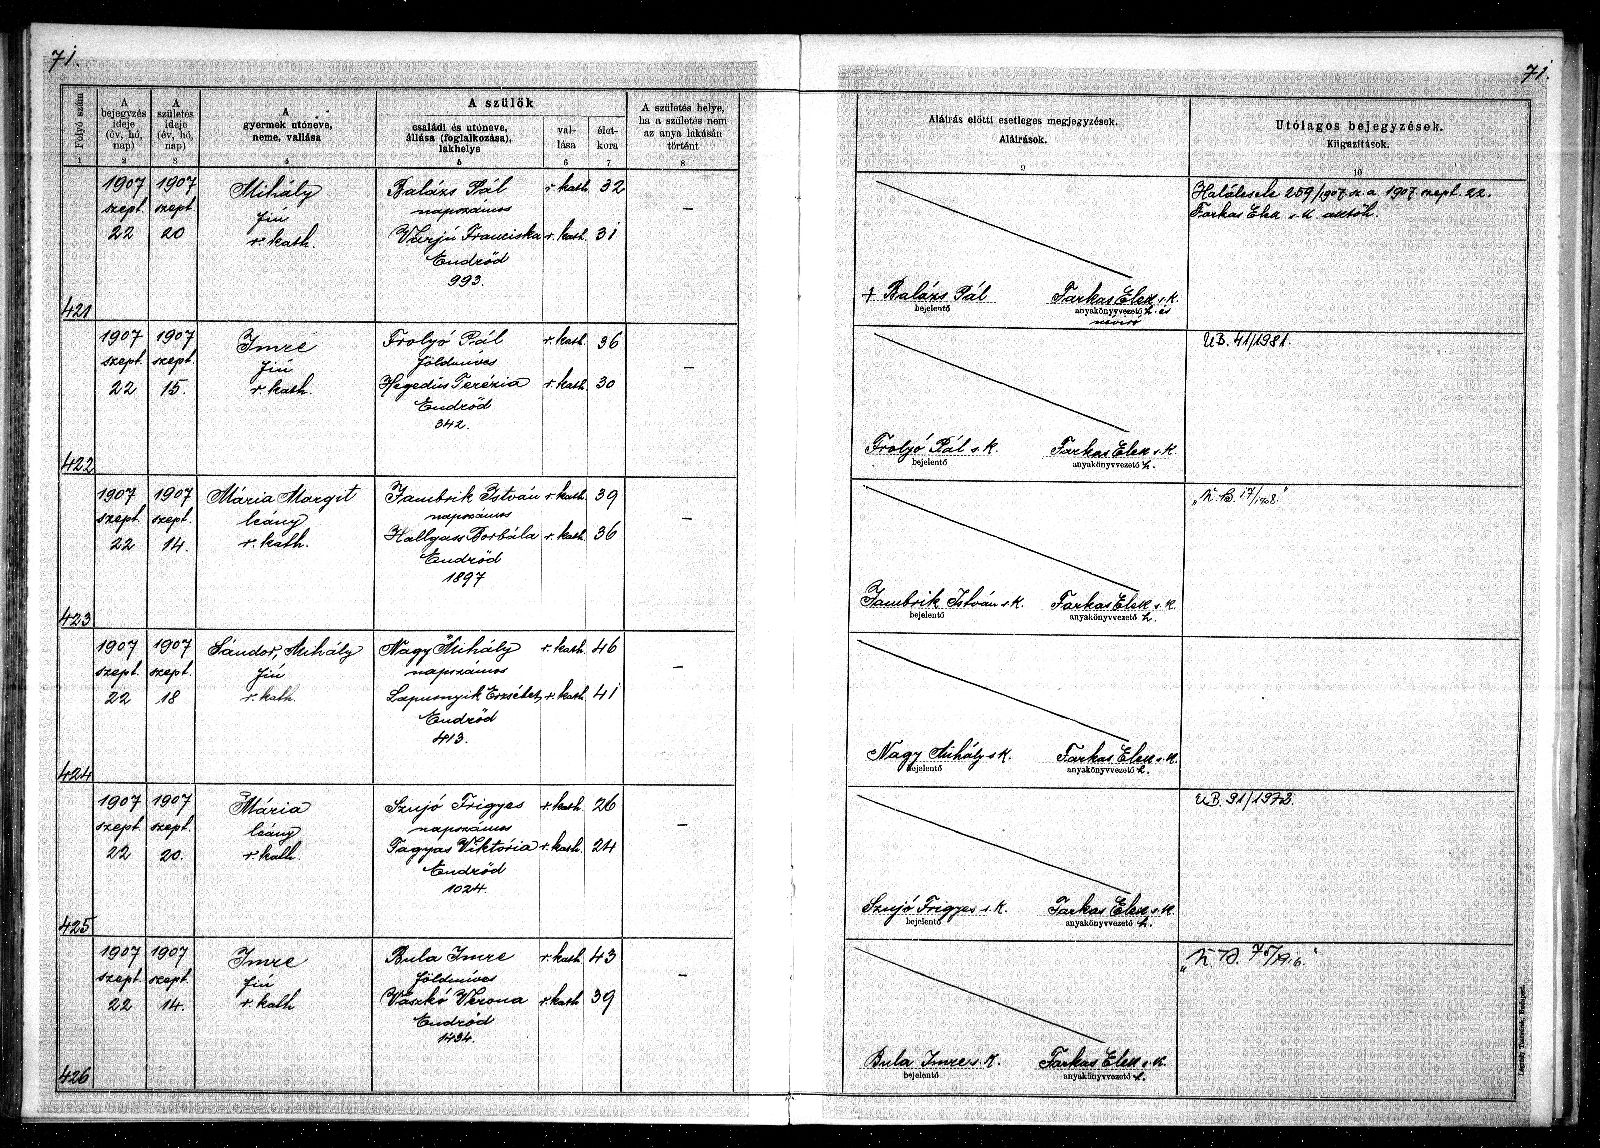 71.
71.
Folyó szám
A bejegyzés ideje (év, hó, nap)
A születés ideje (év, hó, nap)
A gyermek utóneve, neme, vallása
A szülők
családi és utóneve, állása (foglalkozása), lakhelye
vallása
életkora
A születés helye, ha a születés nem az anya lakásán történt
Aláírás előtti esetleges megjegyzések.
Aláírások.
Utólagos bejegyzések.
Kiigazítások.
1 2 3 4 5 6 7 8 9 10
421
1907 szept. 22
1907 szept. 20
Mihály
fiú
r. kath.
Balázs Pál r. kath. 32
napszámos
Verjú Franciska r. kath. 31
Endrőd
993.
—
+ Balázs Pál
bejelentő
Farkas Elek s. k.
anyakönyvvezető h. és
névíró
Halálesete 259/1907 sz. a. 1907. szept. 22.
Farkas Elek s. k. aktöh.
422
1907 szept. 22
1907 szept. 15.
Imre
fiú
r. kath.
Frolyó Pál r. kath. 36
földmíves
Hegedüs Terézia r. kath. 30
Endrőd
342.
—
Frolyó Pál s. k.
bejelentő
Farkas Elek s. k.
anyakönyvvezető h.
UB. 41/1981.
423
1907 szept. 22
1907 szept. 14.
Mária Margit
leány
r. kath.
Jambrik István r. kath. 39
napszámos
Hallgass Borbála r. kath. 36
Endrőd
1897
—
Jambrik István s. k.
bejelentő
Farkas Elek s. k.
anyakönyvvezető h.
424
1907 szept. 22
1907 szept. 18
Sándor, Mihály
fiú
r. kath.
Nagy Mihály r. kath. 46
napszámos
Lapusnyik Erzsébet, r. kath. 41
Endrőd
413.
—
Nagy Mihály s. k.
bejelentő
Farkas Elek s. k.
anyakönyvvezető h.
425
1907 szept. 22
1907 szept. 20.
Mária
leány
r. kath.
Szujó Frigyes r. kath. 26
napszámos
Tagyas Viktória r. kath. 24
Endrőd
1024.
—
Szujó Frigyes s. k.
bejelentő
Farkas Elek s. k.
anyakönyvvezető h.
UB. 91/1973.
426
1907 szept. 22
1907 szept. 14.
Imre
fiú
r. kath
Bula Imre r. kath. 43
földmíves
Vaszkó Verona r. kath 39
Endrőd
1434.
—
Bula Imre s. k.
bejelentő
Farkas Elek s. k.
anyakönyvvezető h.